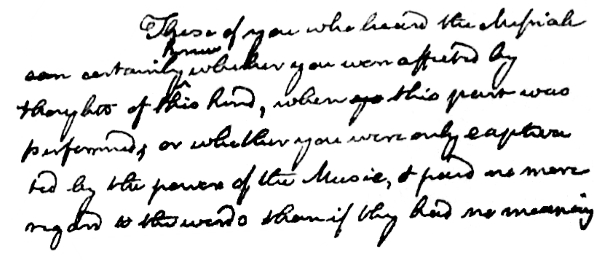 Those of you who heard the Messiah
can certainly know whether you were affected by
thoughts of this kind, when this part was
performed, or whether you were only captiva
ted by the power of the Music, & paid no more
regard to the words than if they had no meaning